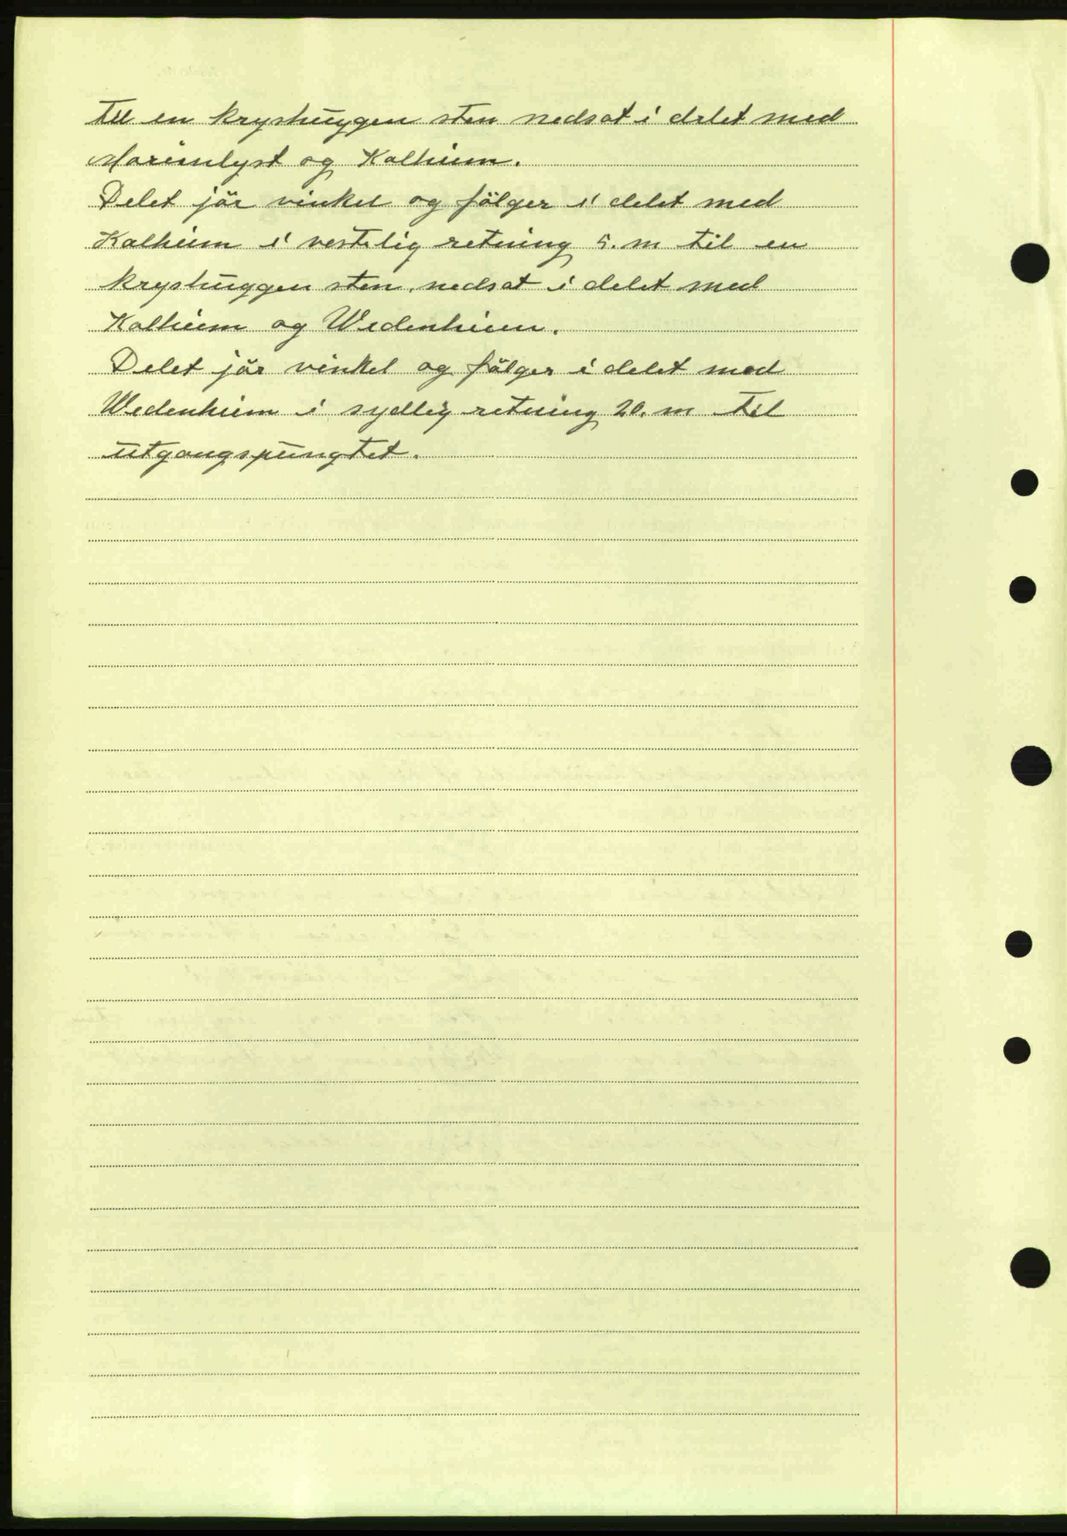 til en kryshuggen sten nedsat i delet med
Marienlyst og Kalheim.
Delet jör vinkel og fölger i delet med
Kalheim i vestelig retning 5. m til en
kryshuggen sten, nedsat i delet med
Kalheim og Wedenheim.
Delet jör vinkel og fölger i delet med
Wedenheim i sydlig retning 20. m til
utgangspungtet.